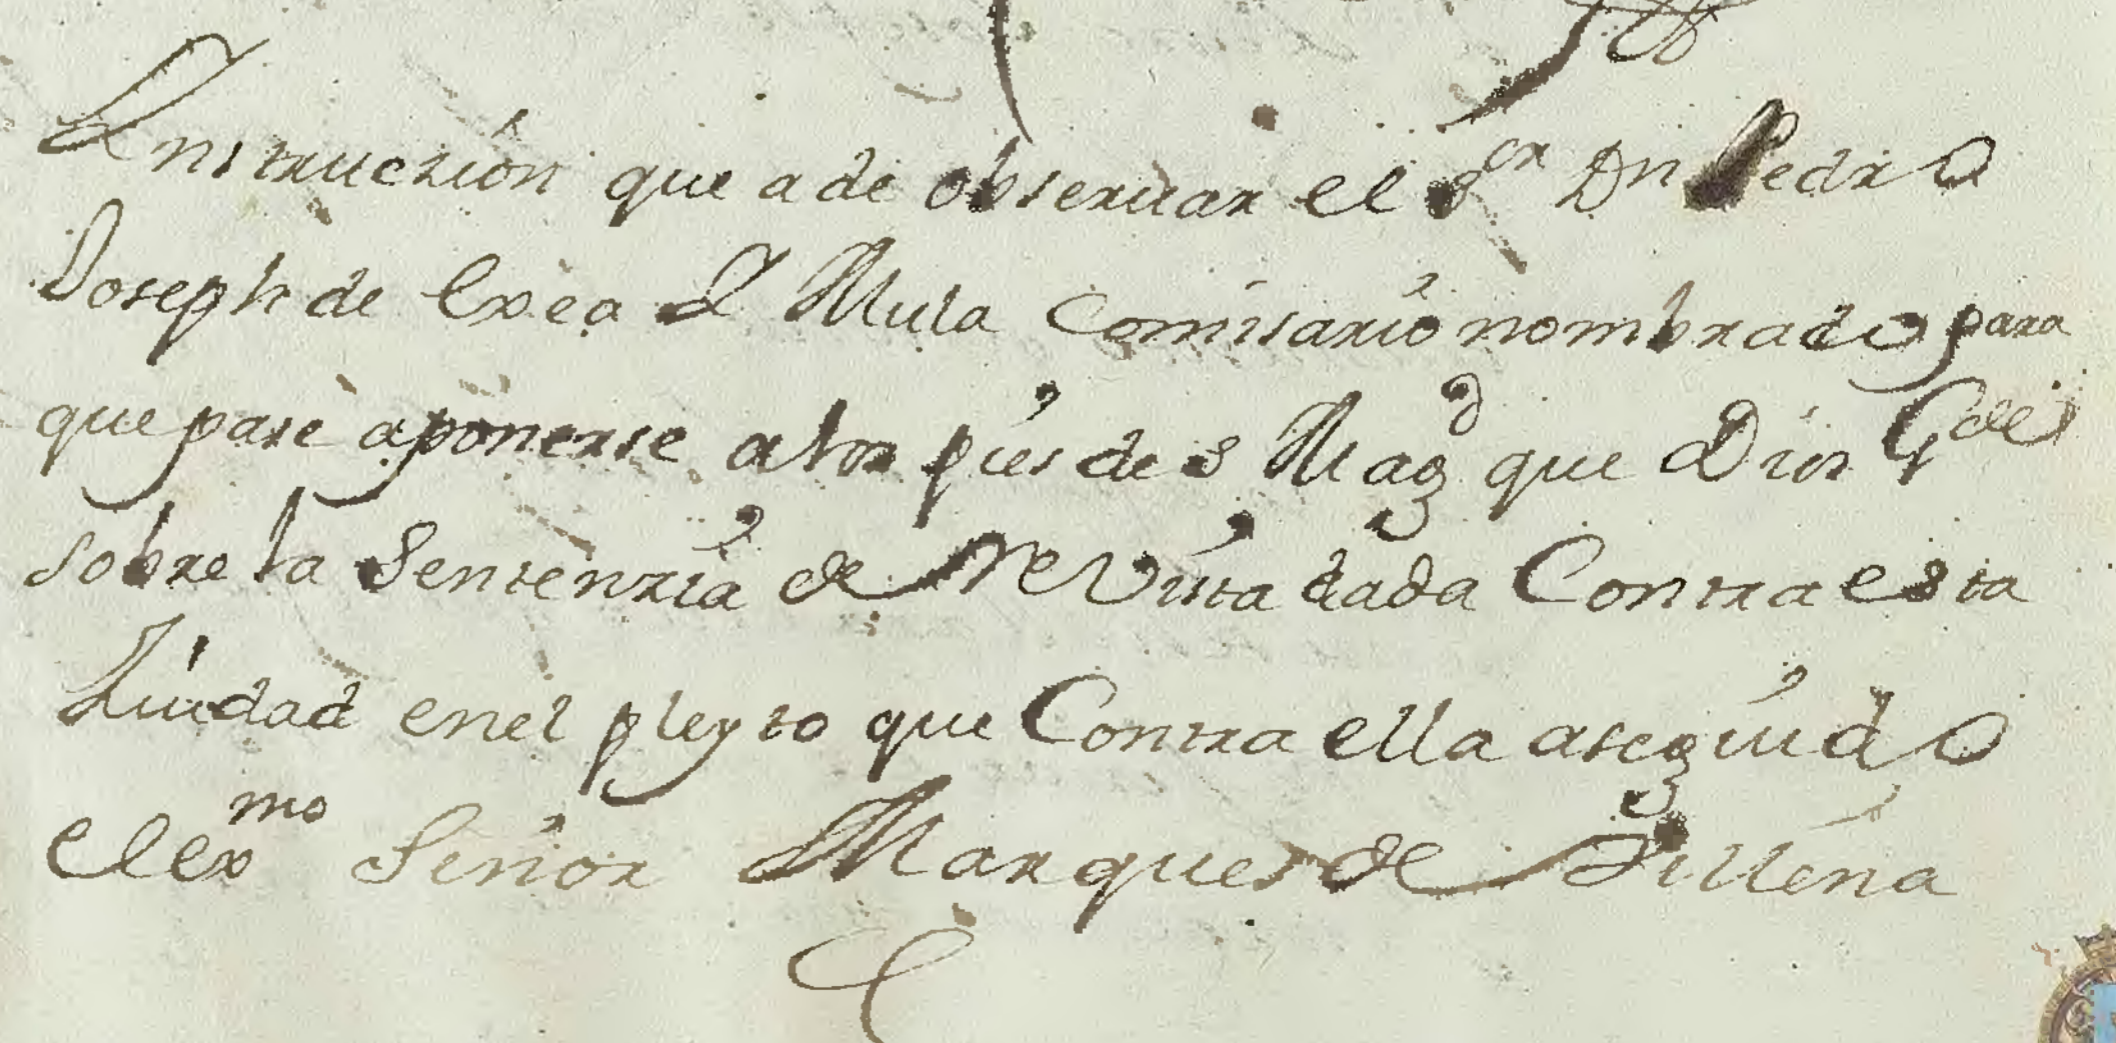 Instruczión que a de obseruar el Sor Dn Pedro
Joseph de Exea I Mula Comisario nombrado para
que pase aponerse alos pies de S Magd que Dios Gde
sobre la Sentenzia de ReVista dada Contra esta
Ziudad enel pleyto que Contra ella aseguido
el exmo Señor Marques de Villena